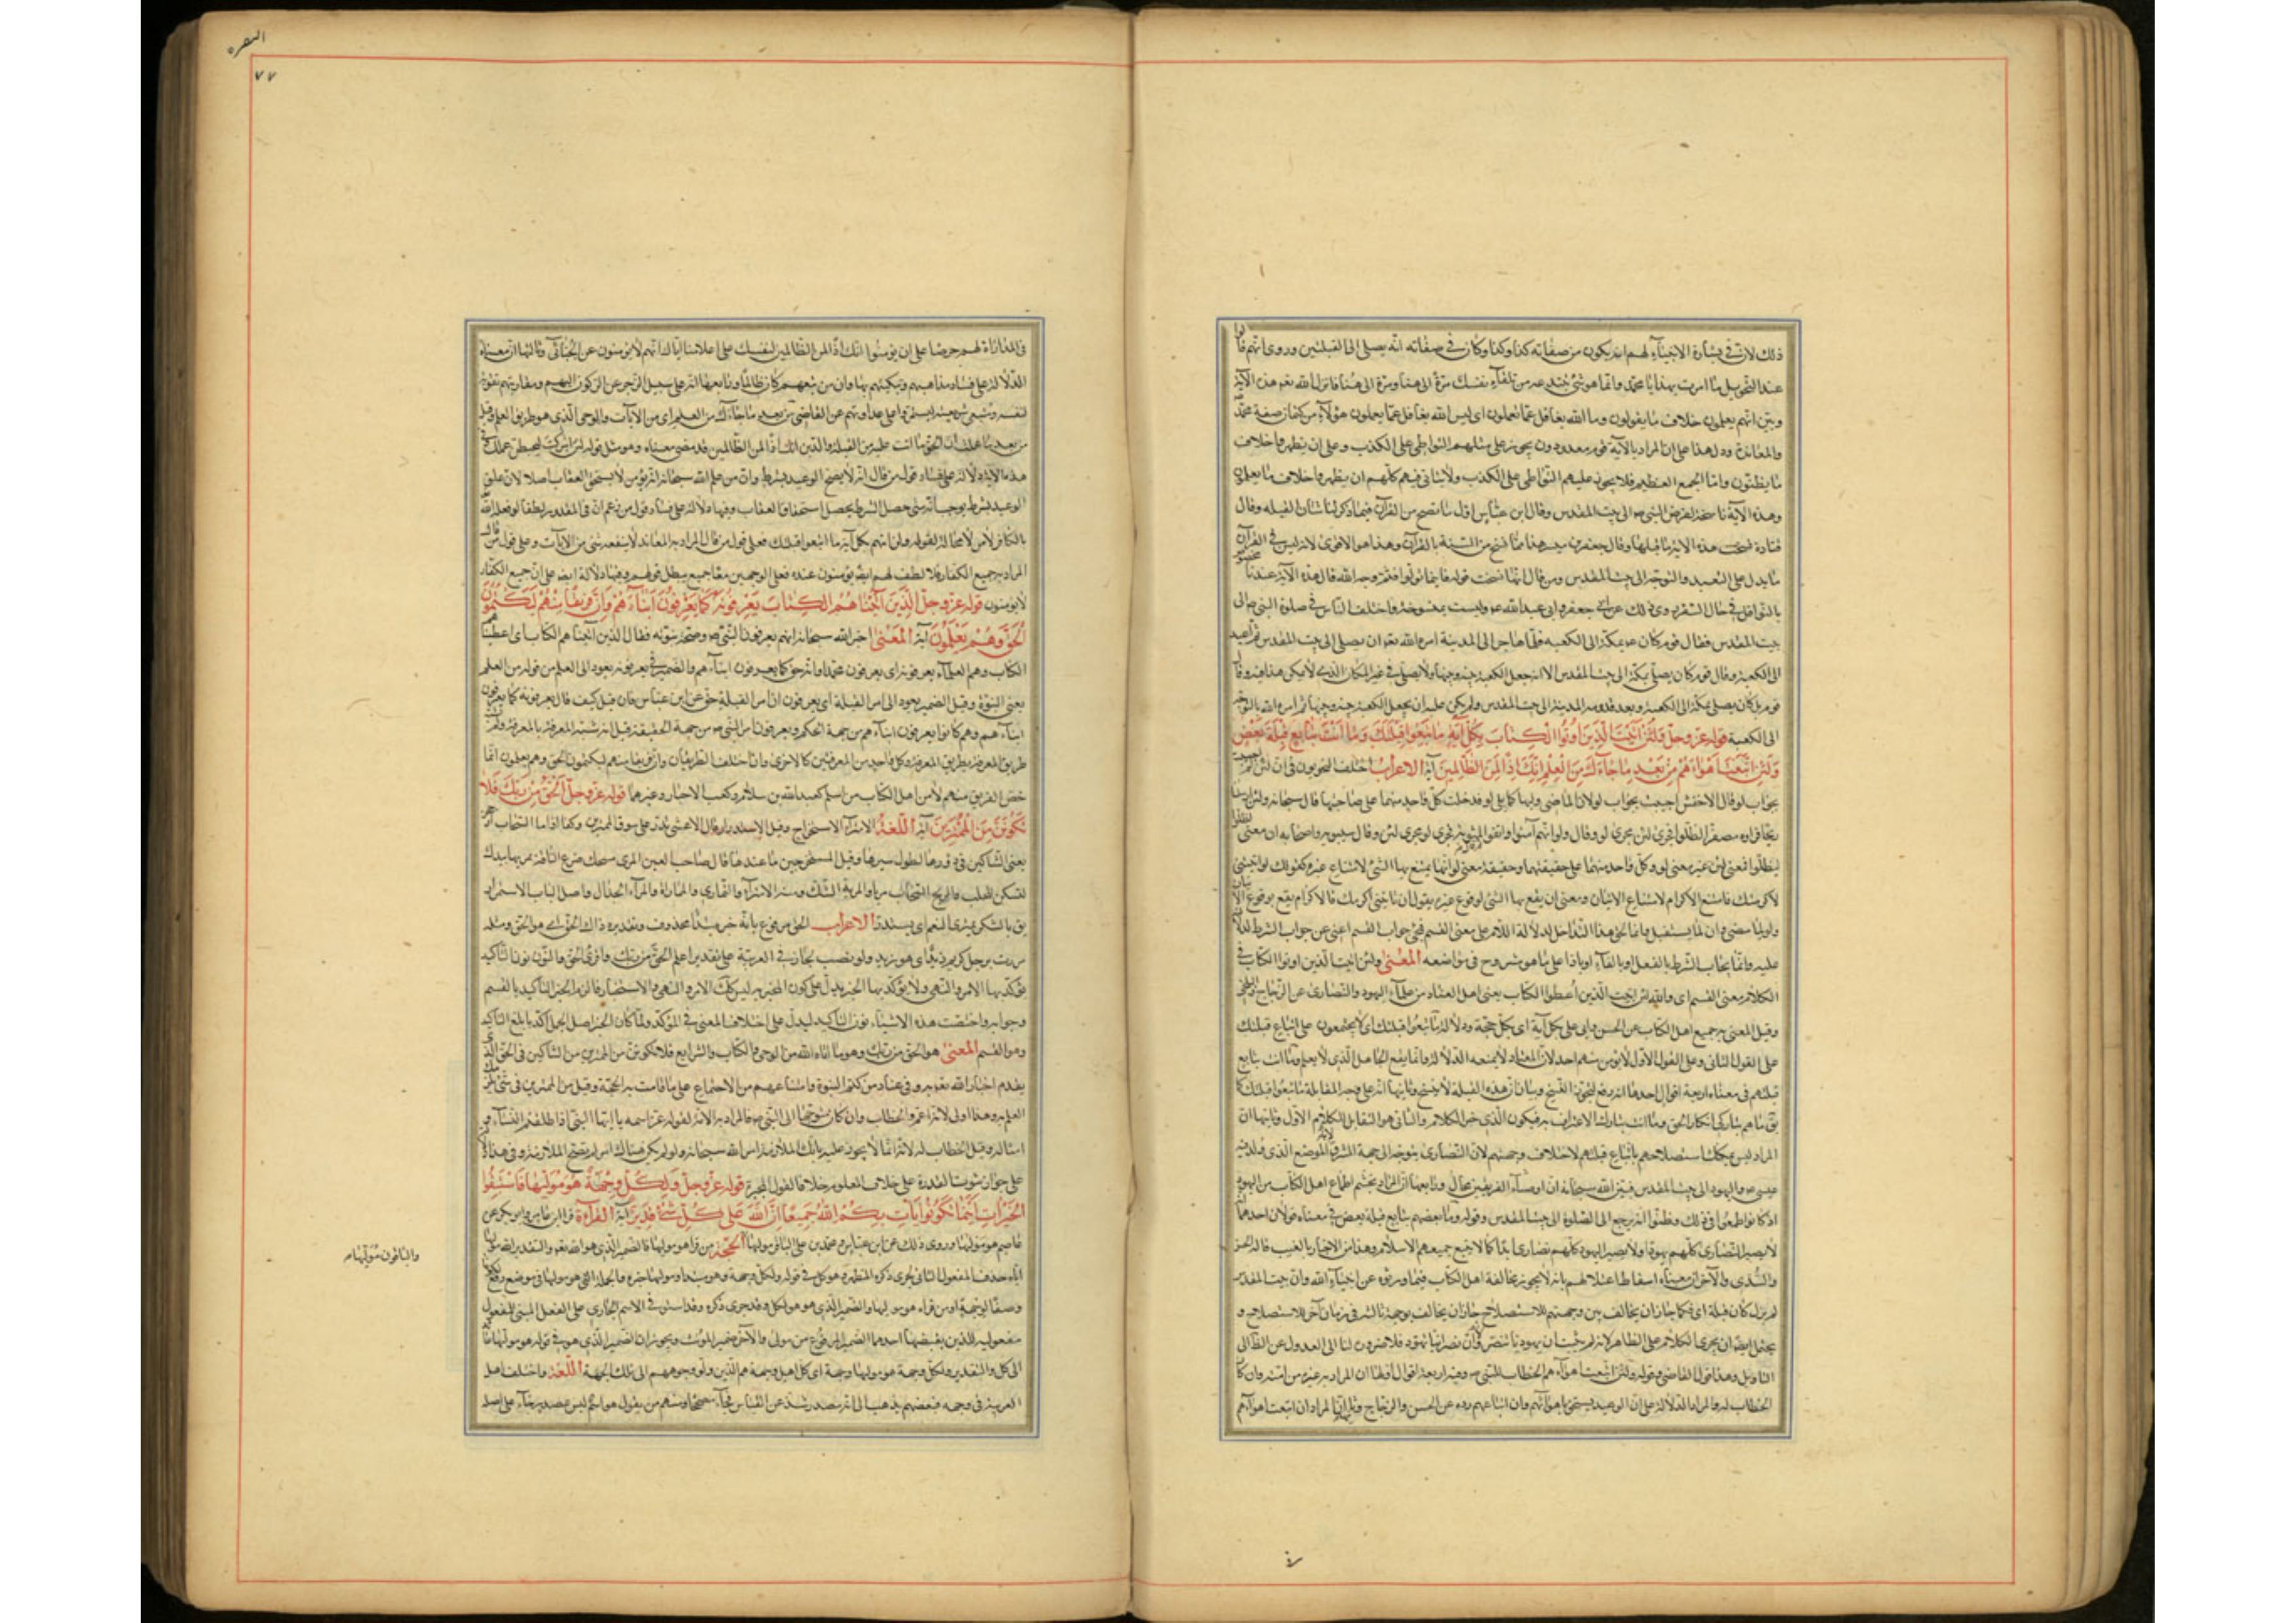 ذلك لان في بشارة الانبياء لهم ان يكون من صفاته كذا وكذا وكان في صفاته انه يصلي الى القبلتين وروى انهم قالوا
عند التحويل ما امرت بهذا يا محمد وانما هو شئ تبتدعه من تلقاء نفسك مرة الى هنا ومرة الى هنا فانزل الله تع هذه الآية
وبين انهم يعلمون خلاف ما يقولون وما الله بغافل عما تعملون اى ليس الله بغافل عما يعمل هؤلاء من كتمان صفة محمد ص
والمعاندة ودل هذا على ان المراد بالآية قوم معدودون يجوز على مثلهم التواطى على الكذب وعلى ان يظهروا خلاف
ما يبطنون واما الجمع العظيم فلا يجوز عليهم التواطى على الكذب ولا يتاتى فيهم كلهم ان يظهروا خلاف ما يعلمون
وهذه الآية ناسخة لفرض التوجه الى بيت المقدس وقال ابن عباس اول ما نسخ من القرآن فيما ذكر لنا شان القبلة وقال
قتادة نسخت هذه الآية ما قبلها وقال جعفر بن مبشر هذا مما نسخ من السنة بالقرآن وهذا هو الاقوى لانه ليس في القرآن
ما يدل على التعبد والتوجه الى بيت المقدس ومن قال انها نسخت قوله فاينما تولوا فثم وجه الله قال هذه الآية عندنا مخصوصة
بالنوافل في حال السفر روى ذلك عن ابى جعفر وابى عبد الله ع وليست بمنسوخة واختلف الناس في صلوة النبى ص الى
بيت المقدس فقال قوم كان ع بمكة الى الكعبة فلما هاجر الى المدينة امره الله تع ان يصلى الى بيت المقدس ثم اعيد
الى الكعبة وقال قوم كان يصلى بمكة الى بيت المقدس الا انه جعل الكعبة بينه وبينها ولا يصلى في غير المكان الذى لا يمكن هذا فيه وقال
قوم بل كان يصلى بمكة الى الكعبة وبعد قدومه المدينة الى بيت المقدس ولم يكن عليه ان يجعل الكعبة بينه وبينها ثم امره الله بالتوجه
الى الكعبة قوله عز وجل ولئن اتيت الذين اوتوا الكتاب بكل آية ما تبعوا قبلتك وما انت بتابع قبلة بعض
ولئن اتبعت اهواءهم من بعد ما جاءك من العلم انك اذا لمن الظالمين آية الاعراب اختلف النحويون في ان لئن لم اجيبت
بجواب لو فقال الاخفش اجيبت بجواب لو لان الماضى وليها كما يلى لو فدخلت كل واحدة منهما على صاحبتها قال سبحانه ولئن ارسلنا
ريحا فراوه مصفرا لظلوا فجرى لئن مجرى لو وقال ولو انهم آمنوا واتقوا لمثوبة فجرى لو مجرى لئن وقال سيبويه واصحابه ان معنى
ليظلوا فمعنى لئن غير معنى لو وكل واحدة منهما على حقيقتهما وحقيقة معنى لو انها يمتنع بها الشئ لامتناع غيره كقولك لو اتيتنى
لاكرمتك فامتنع الاكرام لامتناع الاتيان ومعنى ان يقع بها الشئ لوقوع غيره يقول ان تاتنى اكرمك فالاكرام يقع بوقوع الاتيان
ولو لما مضى وان لما يستقبل وانما لحق هذا التداخل لدلالة اللام على معنى القسم فجئ جواب القسم اغنى عن جواب الشرط لدلالته
عليه وانما يجاب الشرط بالفعل او بالفاء او باذا على ما هو مشروح في مواضعه المعنى ولئن اتيت الذين اوتوا الكتاب في
الكلام معنى القسم اى والله لئن اتيت الذين اعطوا الكتاب يعنى اهل العناد من علماء اليهود والنصارى عن الزجاج والبلخى
وقيل المعنى به جميع اهل الكتاب عن الحسن وابى على بكل آية اى بكل حجة ودلالة ما تبعوا قبلتك اى لا يجتمعون على اتباع قبلتك
على القول الثانى وعلى القول الاول لا يؤمن منهم احد لان المعاند لا ينفعه الدلالة وانما ينفع الجاهل الذى لا يعلم وما انت بتابع
قبلتهم في معناه اربعة اقوال احدها انه رفع لتجويز النسخ وبيان ان هذه القبلة لا تنسخ وثانيها انه على وجه المقابلة ما تبعوا قبلتك كما
يق ما هم بتاركى انكار الحق وما انت بتارك الاعتراف به فيكون الذى جر الكلام والثانى هو التقابل للكلام الاول وثالثها ان
المراد ليس يمكنك استصلاحهم باتباع قبلتهم لاختلاف وجهتهم لان النصارى يتوجه الى جهة المشرق الموضع الذى ولد فيه
عيسى ع واليهود الى بيت المقدس فبين الله سبحانه ان ارضاء الفريقين محال ورابعها ان المراد بحسم اطماع اهل الكتاب من اليهود
اذ كانوا طمعوا في ذلك وظنوا انه يرجع الى الصلوة الى بيت المقدس وقوله وما بعضهم بتابع قبلة بعض في معناه قولان احدهما
لا يصير النصارى كلهم يهودا ولا يصير اليهود كلهم نصارى ابدا كما لا يجتمع جميعهم الاسلام وهذا من الاخبار بالغيب قاله الحسن
والسدى والآخر ان معناه اسقاط اعتلالهم بانه لا يجوز مخالفة اهل الكتاب فيما ورثوه عن انبياء الله وان بيت المقدس
لم يزل كان قبلة اى فكما جاز ان يخالف بين وجهتيهم للاستصلاح جاز ان يخالف بوجهة ثالثة في زمان آخر للاستصلاح و
يحتمل ايضا ان يجرى الكلام على الظاهر لانه لم يثبت ان يهوديا تنصر وان نصرانيا تهود فلا ضرورة لنا الى العدول عن الظاهر الى
التاويل وهذا قول القاضى وقوله ولئن اتبعت اهواءهم الخطاب للنبى ص وفيه اربعة اقوال اولها ان المراد به غيره من امته وان كان
الخطاب له والمراد الدلالة على ان الوعيد يستحق باهوائهم وان اتباعهم ردة عن الحسن والزجاج وثانيها ان المراد ان اتبعت اهوائهم
البقره
٧٧
في المداراة لهم حرصا على ان يؤمنوا انك اذا لمن الظالمين لنفسك على اعلامنا اياك انهم لا يؤمنون عن الجبائى وثالثها ان معناه
الدلالة على فساد مذاهبهم وتبكيتهم بها وان من تبعهم كان ظالما ورابعها انه على سبيل الزجر عن الركون اليهم ومقاربتهم تقوية
لنفسه ومتبعى شريعته ليستمروا على عداوتهم عن القاضى من بعد ما جاءك من العلم اى من الآيات والوحى الذى هو طريق العلم وقيل
من بعد ما علمت ان الحق ما انت عليه من القبلة والدين انك اذا لمن الظالمين قد مضى معناه وهو مثل قوله لئن اشركت ليحبطن عملك وفى
هذه الآية دلالة على فساد قول من قال انه لا يصح الوعيد بشرط وان من علم الله سبحانه انه يؤمن لا يستحق العقاب اصلا لان علق
الوعيد بشرط يوجب انه متى حصل الشرط يحصل استحقاق العقاب وفيها دلالة على فساد قول من زعم ان في المقدور لطفا لو فعله الله
بالكافر لآمن لا محالة لقوله ولئن اتيتهم بكل آية ما اتبعوا قبلتك فعلى قول من قال المراد به المعاند لا ينفعه شئ من الآيات وعلى قول من قال
المراد به جميع الكفار فلا لطف لهم ايضا يؤمنون عنده فعلى الوجهين معا جميع يبطل قولهم وفيها دلالة ايضا على ان جميع الكفار
لا يؤمنون قوله عز وجل الذين آتيناهم الكتاب يعرفونه كما يعرفون ابناءهم وان فريقا منهم ليكتمون
الحق وهم يعلمون آية المعنى اخبر الله سبحانه انهم يعرفون النبى ص وصحة نبوته فقال الذين آتيناهم الكتاب اى اعطيناهم
الكتاب وهم العلماء يعرفونه اى يعرفون محمدا وانه حق كما يعرفون ابناءهم والضمير في يعرفونه يعود الى العلم من قوله من العلم
يعنى النبوة وقيل الضمير يعود الى امر القبلة اى يعرفون ان امر القبلة حق عن ابن عباس فان قيل كيف قال يعرفونه كما يعرفون
ابناءهم وهم كانوا يعرفون ابناءهم من جهة الحكم ويعرفون امر النبى ص من جهة الحقيقة قيل انه شبه المعرفة بالمعرفة ولم يشبه
طريق المعرفة بطريق المعرفة وكل واحد من المعرفتين كالاخرى وان اختلف الطريقان وان فريقا منهم ليكتمون الحق وهم يعلمون انما
خص الفريق منهم لان من اهل الكتاب من اسلم كعبد الله بن سلام وكعب الاحبار وغيرهما قوله عز وجل الحق من ربك فلا
تكونن من الممترين آية اللغة الامتراء الاستخراج وقيل الاستدرار قال الاعشى تدر على اسوق الممترين وكما اذا ما السحاب ارجحن
يعنى الشاكين في درورها لطول سيرها وقيل المستخرجين ما عندها قال صاحب العين المرى مسحك ضرع الناقة تمريها بيدك
لتسكن للحلب والريح السحاب مريا والمرية الشك ومنه الامتراء والتمارى والمماراة والمراء الجدال واصل الباب الاستدرار
يق بالشكر تمترى النعم اى يستدر الاعراب الحق مرفوع بانه خبر مبتدأ محذوف وتقديره ذاك الحق او هو الحق ومثله
مررت برجل كريم زيد اى هو زيد ولو نصب لجاز في العربية على تقدير اعلم الحق من ربك واقرء الحق والنون نون التاكيد
يؤكد بها الامر والنهى ولا يؤكد بها الخبر لما يدل على كون المخبر به ليس كك الامر والنهى والاستخبار فالزم الخبر التاكيد بالقسم
وجوابه واختصت هذه الاشياء بنون التاكيد ليدل على اختلاف المعنى في المؤكد ولما كان الخبر اصل الجمل اكد بابلغ التاكيد
وهو القسم المعنى هو الحق من ربك وهو ما اتاه الله من الوحى والكتاب والشرايع فلا تكونن من الممترين من الشاكين في الحق الذى
يقدم اخبار الله تع به وفي عناد من كتم النبوة وامتناعهم من الاجتماع على ما قامت به الحجة وقيل من الممترين في شئ يلزمك
العلم به وهذا اولى لانه اعم والخطاب وان كان متوجها الى النبى ص فالمراد به الامة لقوله عز اسمه يا ايها النبى اذا طلقتم النساء و
امثاله وقيل الخطاب له لانه انما لا يجوز عليه ذلك لملازمته امر الله سبحانه ولو لم يكن هناك امر لم تصح الملازمة وفي هذا دلالة
على جواز ثبوت القدرة على خلاف المعلوم خلافا لقول المجبرة قوله عز وجل ولكل وجهة هو موليها فاستبقوا
الخيرات اينما تكونوا يات بكم الله جميعا ان الله على كل شئ قدير آية القراءة قرأ ابن عامر وابو بكر عن
عاصم هو مولاها وروى ذلك عن ابن عباس ومحمد بن على الباقر مولاها الحجة من قرأ هو موليها فالضمير الذى هو الله تع والتقدير الله موليها
اياه حذف المفعول الثانى لجرى ذكره المظهر وهو كل في قوله ولكل وجهة وهو مبتدا وموليها خبره والجملة التى هو موليها في موضع رفع لكونها
وصفا لوجهة ومن قرأ هو موليها والضمير الذى هو هو لكل وقد جرى ذكره وقد استوفى الاسم الجارى على الفعل المبنى للمفعول
مفعوليه اللذين يقتضيهما احدهما الضمير المرفوع من مولى والآخر ضمير المؤنث ويجوز ان الضمير الذى هو في قوله هو موليها
الى كل والتقدير ولكل وجهة هو موليها وجهة اى كل اهل وجهة هم الذين ولوا وجوههم الى تلك الجهة اللغة واختلف اهل
العربية في وجهة فبعضهم يذهب الى انه مصدر شذ عن القياس فجاء مصححا ومنهم من يقول هو اسم ليس بمصدر جاء على اصله
والباقون مُوَلِّيها م